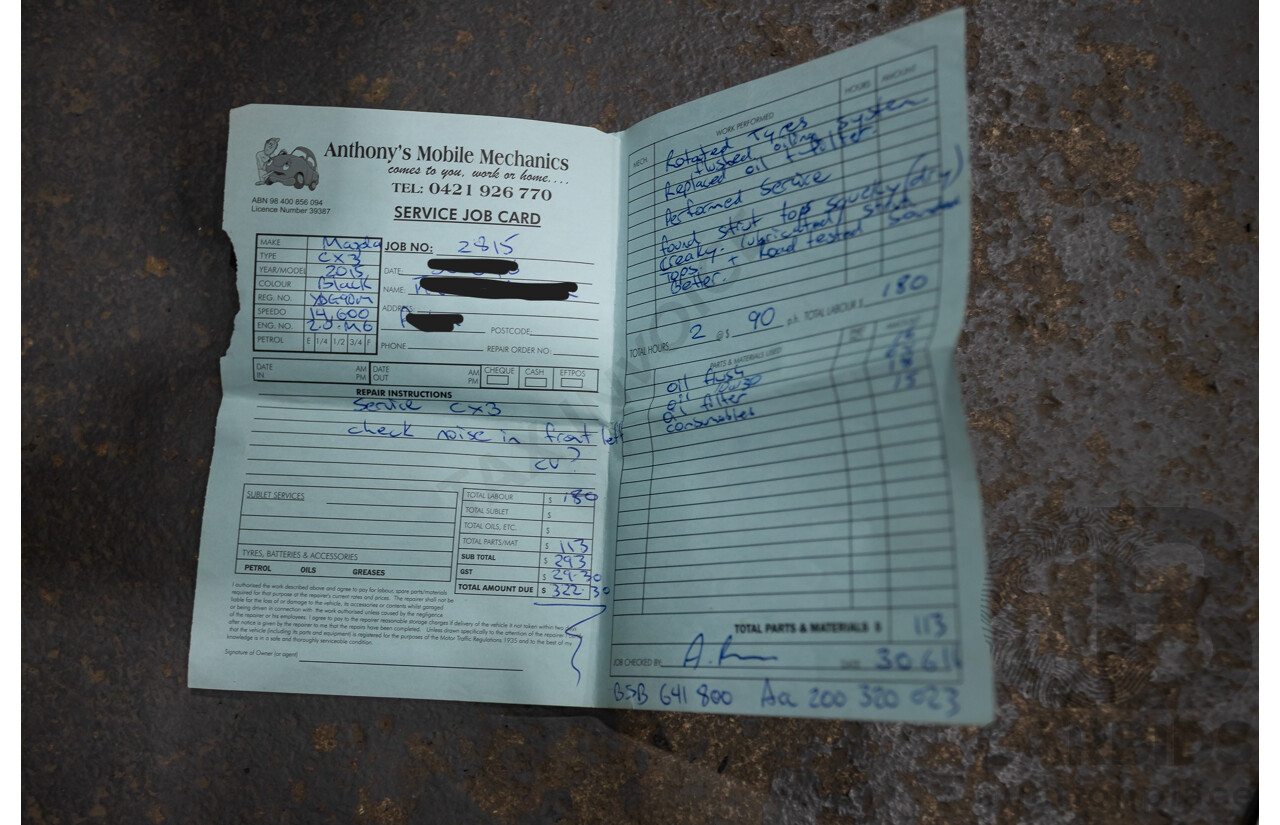 Anthony's Mobile Mechanics
comes to you, work or home....
TEL: 0421 926 770
ABN 98 400 856 094
Licence Number 39387
SERVICE JOB CARD
MAKE Mazda
TYPE CX3
YEAR/MODEL 2015
COLOUR Black
REG. NO.
SPEEDO 14,600
ENG. NO.
PETROL E 1/4 1/2 3/4 F
JOB NO: 2815
DATE:
NAME:
ADDRESS
POSTCODE
PHONE
REPAIR ORDER NO:
DATE IN AM PM DATE OUT AM PM CHEQUE CASH EFTPOS
REPAIR INSTRUCTIONS
Service CX3
check noise in front left
CV?
SUBLET SERVICES
TYRES, BATTERIES & ACCESSORIES
PETROL OILS GREASES
TOTAL LABOUR $ 180
TOTAL SUBLET $
TOTAL OILS, ETC. $
TOTAL PARTS/MAT $ 113
SUB TOTAL $ 293
GST $ 29.30
TOTAL AMOUNT DUE $ 322.30
I authorised the work described above and agree to pay for labour, spare parts/materials
required for that purpose at the repairer's current rates and prices. The repairer shall not be
liable for the loss of or damage to the vehicle, its accessories or contents whilst garaged
or being driven in connection with the work authorised unless caused by the negligence
of the repairer or his employees. I agree to pay the repairer reasonable storage charges if delivery of the vehicle it not taken within two
after notice is given by the repairer to me that the repairs have been completed. Unless drawn specifically to the attention of the repairer
that the vehicle (including its parts and equipment) is registered for the purposes of the Motor Traffic Regulations 1935 and to the best of my
knowledge is in a safe and thoroughly serviceable condition.
Signature of Owner (or agent)
MECH. WORK PERFORMED HOURS AMOUNT
Rotated Tyres
flushed oiling system
Replaced oil + filter
Performed Service
found strut tops squeeky (dry)
creaky. lubricated strut
Tops. + Road tested Sounded
Better.
TOTAL HOURS 2 @ $ 90 p.h. TOTAL LABOUR $ 180
PARTS & MATERIALS USED
oil flush
oil 0w30
oil filter
consumables 15
TOTAL PARTS & MATERIALS $ 113
JOB CHECKED BY DATE
BSB 641 800 Aa 200 320 023